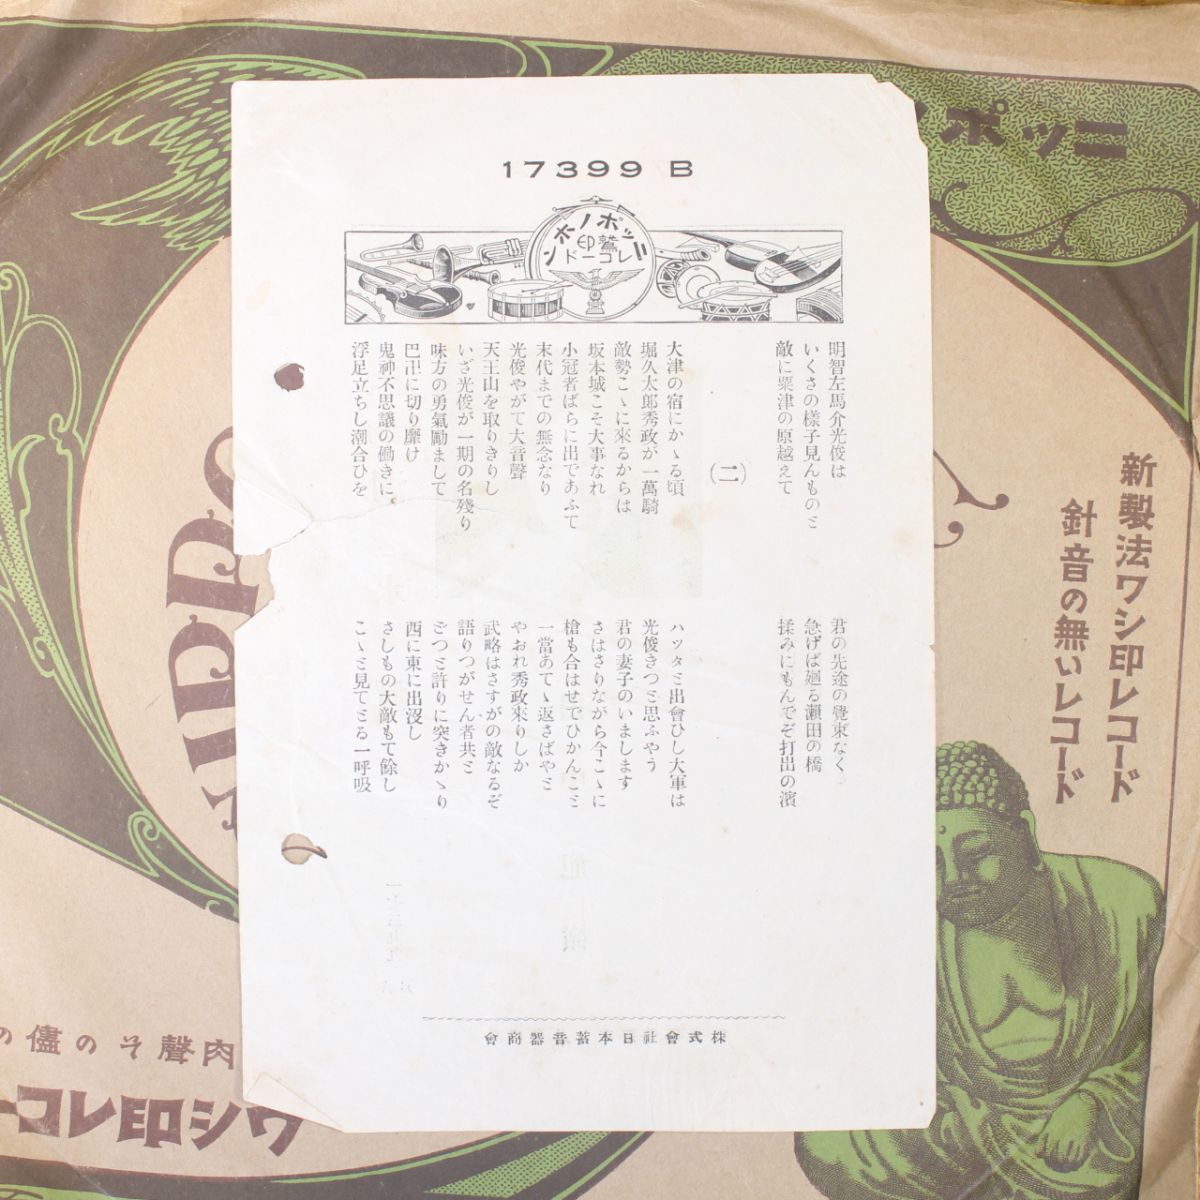 17399 B
ニッポノホン
鷲印
レコード
明智左馬介光俊は　君の先途の覺束なく
いくさの樣子見んものと　急げば廻る瀬田の橋
敵に粟津の原越えて　揉みにもんでぞ打出の濱
(二)
大津の宿にかゝる頃　ハッタと出會ひし大軍は
堀久太郎秀政が一萬騎　光俊きつと思ふやう
敵勢こゝに來るからは　君の妻子のいまします
坂本城こそ大事なれ　さはさりながら今こゝに
小冠者ばらに出であふて　槍も合はせでひかんこと
末代までの無念なり　一當あてゝ返さばやと
光俊やがて大音聲　やおれ秀政來りしか
天王山を取りきりし　武略はさすがの敵なるぞ
いざ光俊が一期の名殘り　語りつがせん者共と
味方の勇氣勵まして　どつと許りに突きかゝり
巴卍に切り靡け　西に東に出沒し
鬼神不思議の働きに　さしもの大敵もて餘し
浮足立ちし潮合ひを　こゝと見てとる一呼吸
株式會社日本蓄音器商會
ニッポ
新製法ワシ印レコード
針音の無いレコード
肉聲その儘の
ワシ印レコー